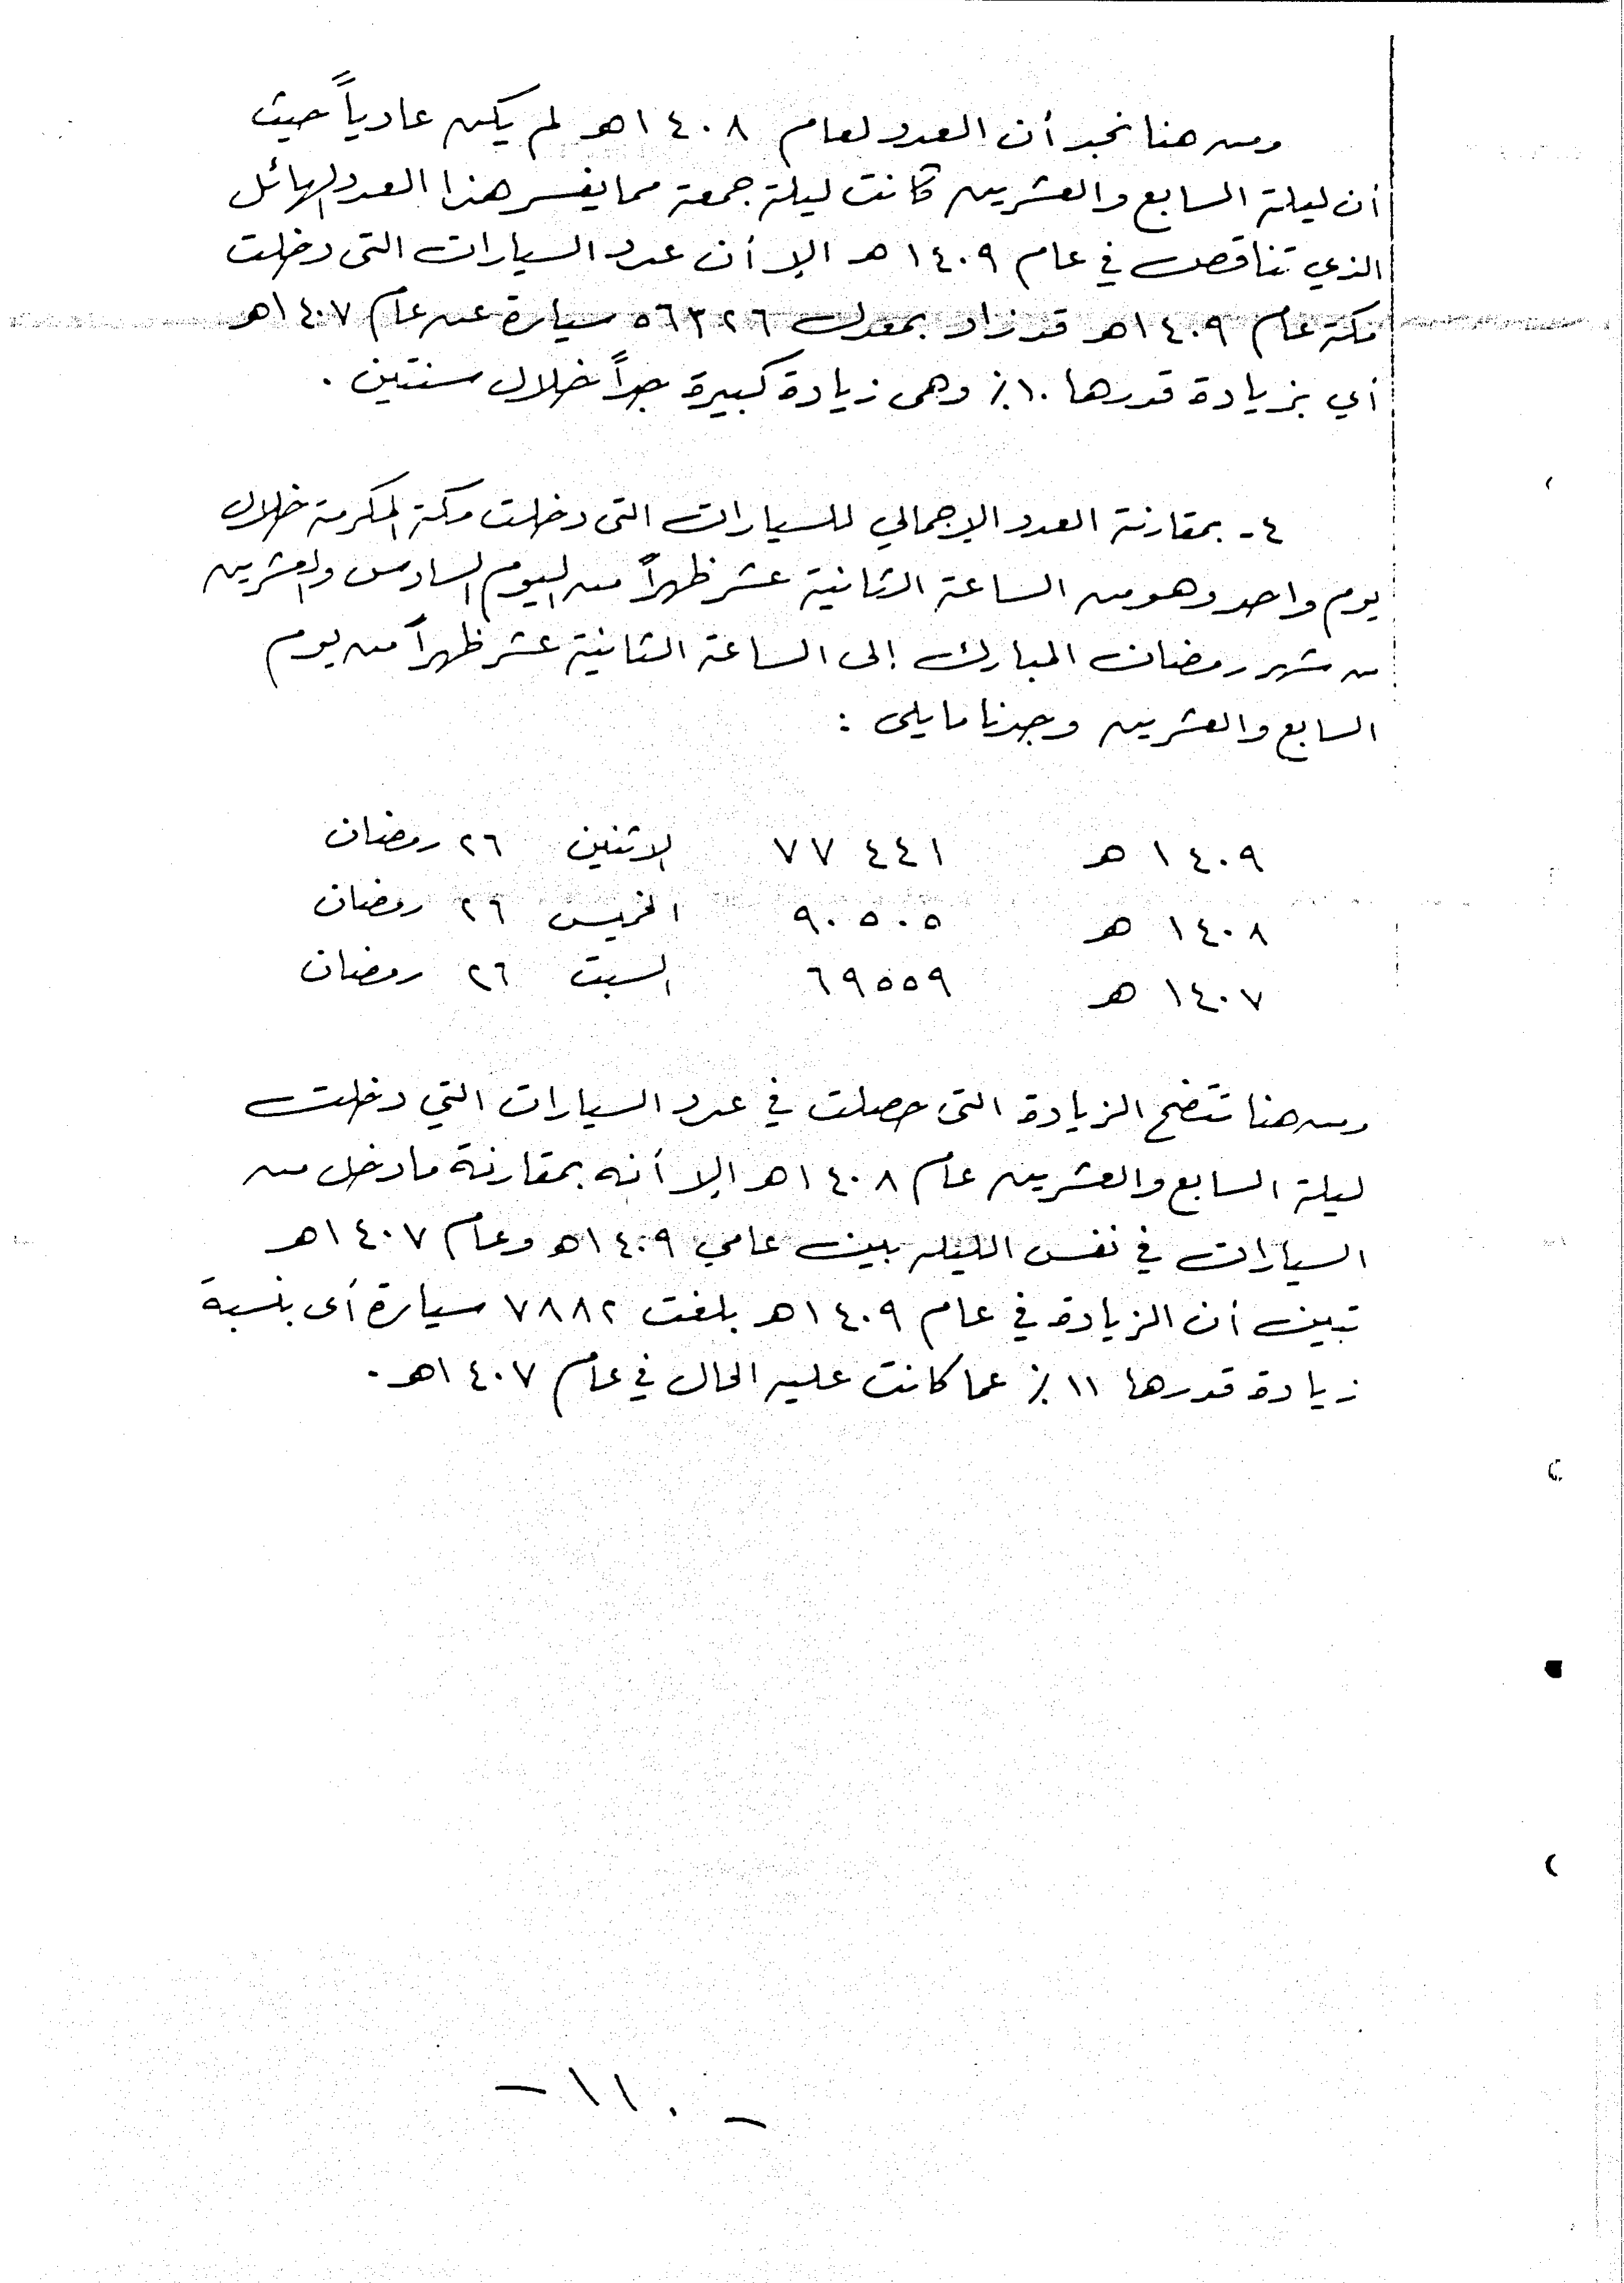 ومن هنا نجد أن العدد لعام ١٤٠٨هـ لم يكن عادياً حيث
أن ليلة السابع والعشرين كانت ليلة جمعة مما يفسر هذا العدد الهائل
الذي تناقص في عام ١٤٠٩هـ إلا أن عدد السيارات التى دخلت
مكة عام ١٤٠٩هـ قد زاد بمعدل ٥٦٣٢٦ سيارة عن عام ١٤٠٧هـ
أي بزيادة قدرها ١٠٪ وهى زيادة كبيرة جداً خلال سنتين .
٤- بمقارنة العدد الإجمالي للسيارات التى دخلت مكة المكرمة خلال
يوم واحد وهو من الساعة الثانية عشر ظهراً من اليوم السادس والعشرين
من شهر رمضان المبارك إلى الساعة الثانية عشر ظهراً من يوم
السابع والعشرين وجدنا مايلى :
١٤٠٩ هـ ٧٧٤٤١ الاثنين ٢٦ رمضان
١٤٠٨ هـ ٩٠٥٠٥ الخميس ٢٦ رمضان
١٤٠٧ هـ ٦٩٥٥٩ السبت ٢٦ رمضان
ومن هنا تتضح الزيادة التى حصلت في عدد السيارات التي دخلت
ليلة السابع والعشرين عام ١٤٠٨هـ إلا أنه بمقارنة مادخل من
السيارات في نفس الليلة بين عامي ١٤٠٩هـ وعام ١٤٠٧هـ
تبين أن الزيادة في عام ١٤٠٩هـ بلغت ٧٨٨٢ سيارة أى بنسبة
زيادة قدرها ١١٪ عما كانت عليه الحال في عام ١٤٠٧هـ .
- ١١٠ -